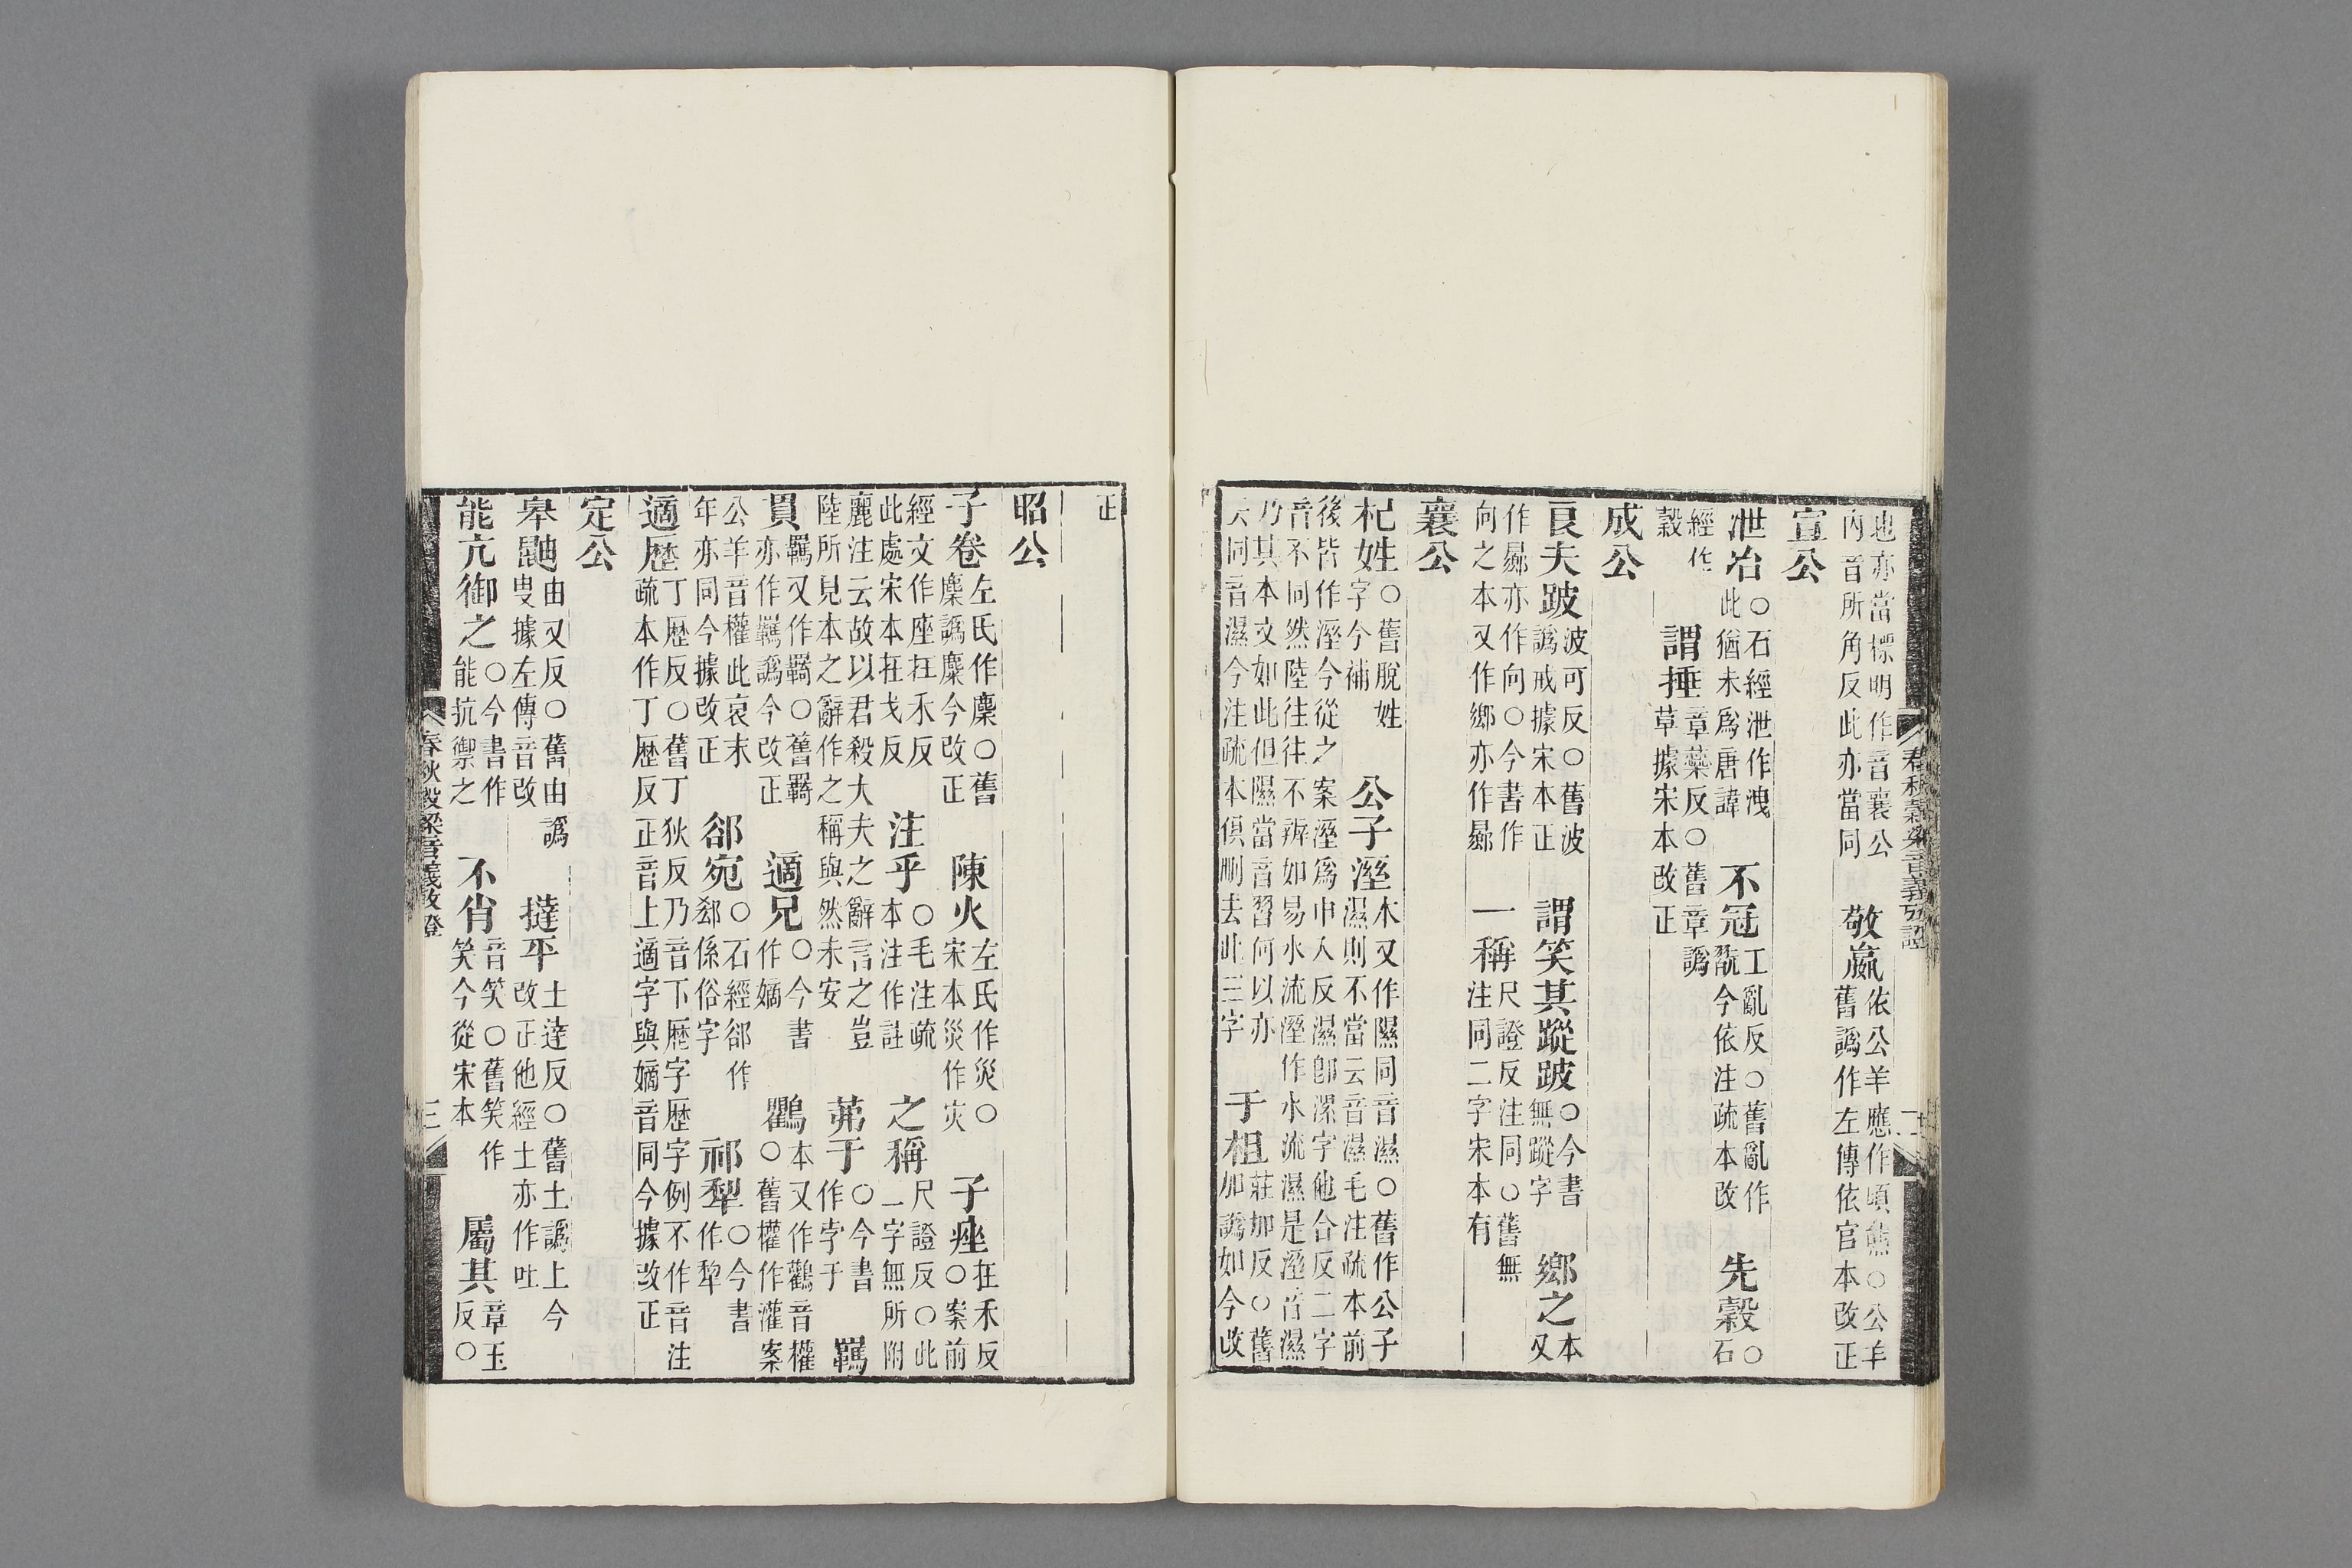 春秋穀梁音義攷證
也亦當標明作音襄公內音所角反此亦當同 敬嬴依公羊應作頃熊○公羊舊譌作左傳依官本改正
宣公
泄冶○石經泄作洩此猶未爲唐諱 不冠工亂反○舊亂作翫今依注疏本改 先縠○石
經作縠 謂捶章藥反○舊章譌草據宋本改正
成公
良夫跛波可反○舊波譌戒據宋本正 謂笑其蹤跛○今書無蹤字 鄉之本又
作曏亦作向○今書作向之本又作鄉亦作曏 一稱尺證反注同○舊無注同二字宋本有
襄公
杞姓○舊脫姓字今補 公子溼本又作隰同音濕○舊作公子濕則不當云音濕毛注疏本前
後皆作溼今從之案溼爲申入反濕卽漯字他合反二字音不同然陸往往不辨如易水流溼作水流濕是溼音濕
乃其本文如此但隰當音習何以亦大同音濕今注疏本俱刪去此三字 于柤莊加反○舊加譌如今改
正
昭公
子卷左氏作麇○舊麇譌麋今改正 陳火左氏作災○宋本災作灾 子痤在禾反○案前
經文作座在禾反此處宋本在戈反 注乎○毛注疏本注作註 之稱尺證反○此一字無所附
麗注云故以君殺大夫之辭言之豈陸所見本之辭作之稱與然未安 茀于○今書作孛于 羈
貫羈又作羇○舊羇亦作羈譌今改正 適兄○今書作嫡 鸜本又作鸛音權○舊權作灌案
公羊音權此哀末年亦同今據改正 郤宛○石經郤作郄係俗字 祁犂○今書作犁
適歷丁歷反○舊丁狄反乃音下歷字歷字例不作音注疏本作丁歷反正音上適字與嫡音同今據改正
定公
皋鼬由又反○舊由譌曳據左傳音改 撻平土達反○舊土譌上今改正他經土亦作吐
能亢御之○今書作能抗禦之 不肖音笑○舊笑作笑今從宋本 屬其章玉反○
春秋穀梁音義攷證 三